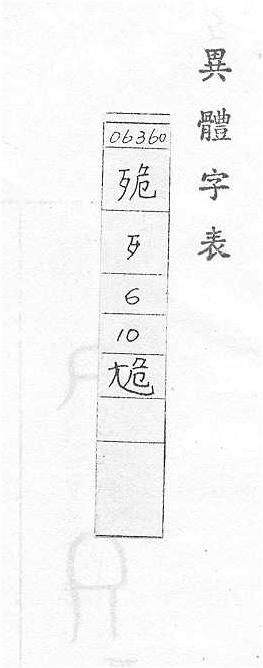 異體字表
06360
歹
6
10